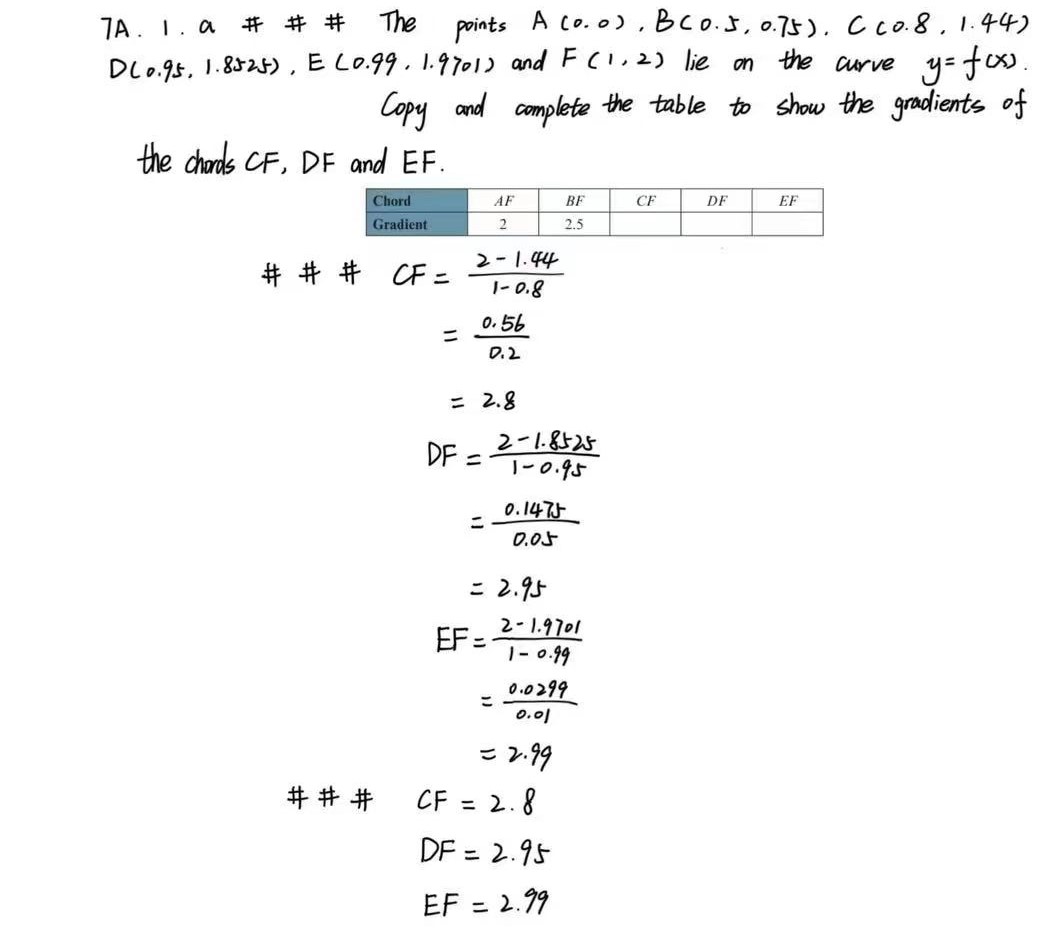 7A. 1. a # # # The points A (0.0), B(0.5, 0.75). C (0.8, 1.44)
D(0.95, 1.8525), E (0.99, 1.9701) and F (1, 2) lie on the curve y=f(x).
Copy and complete the table to show the gradients of
the chords CF, DF and EF.
Chord AF BF CF DF EF
Gradient 2 2.5
# # # CF = \frac{2-1.44}{1-0.8}
= \frac{0.56}{0.2}
= 2.8
DF = \frac{2-1.8525}{1-0.95}
= \frac{0.1475}{0.05}
= 2.95
EF = \frac{2-1.9701}{1-0.99}
= \frac{0.0299}{0.01}
= 2.99
# # # CF = 2.8
DF = 2.95
EF = 2.99